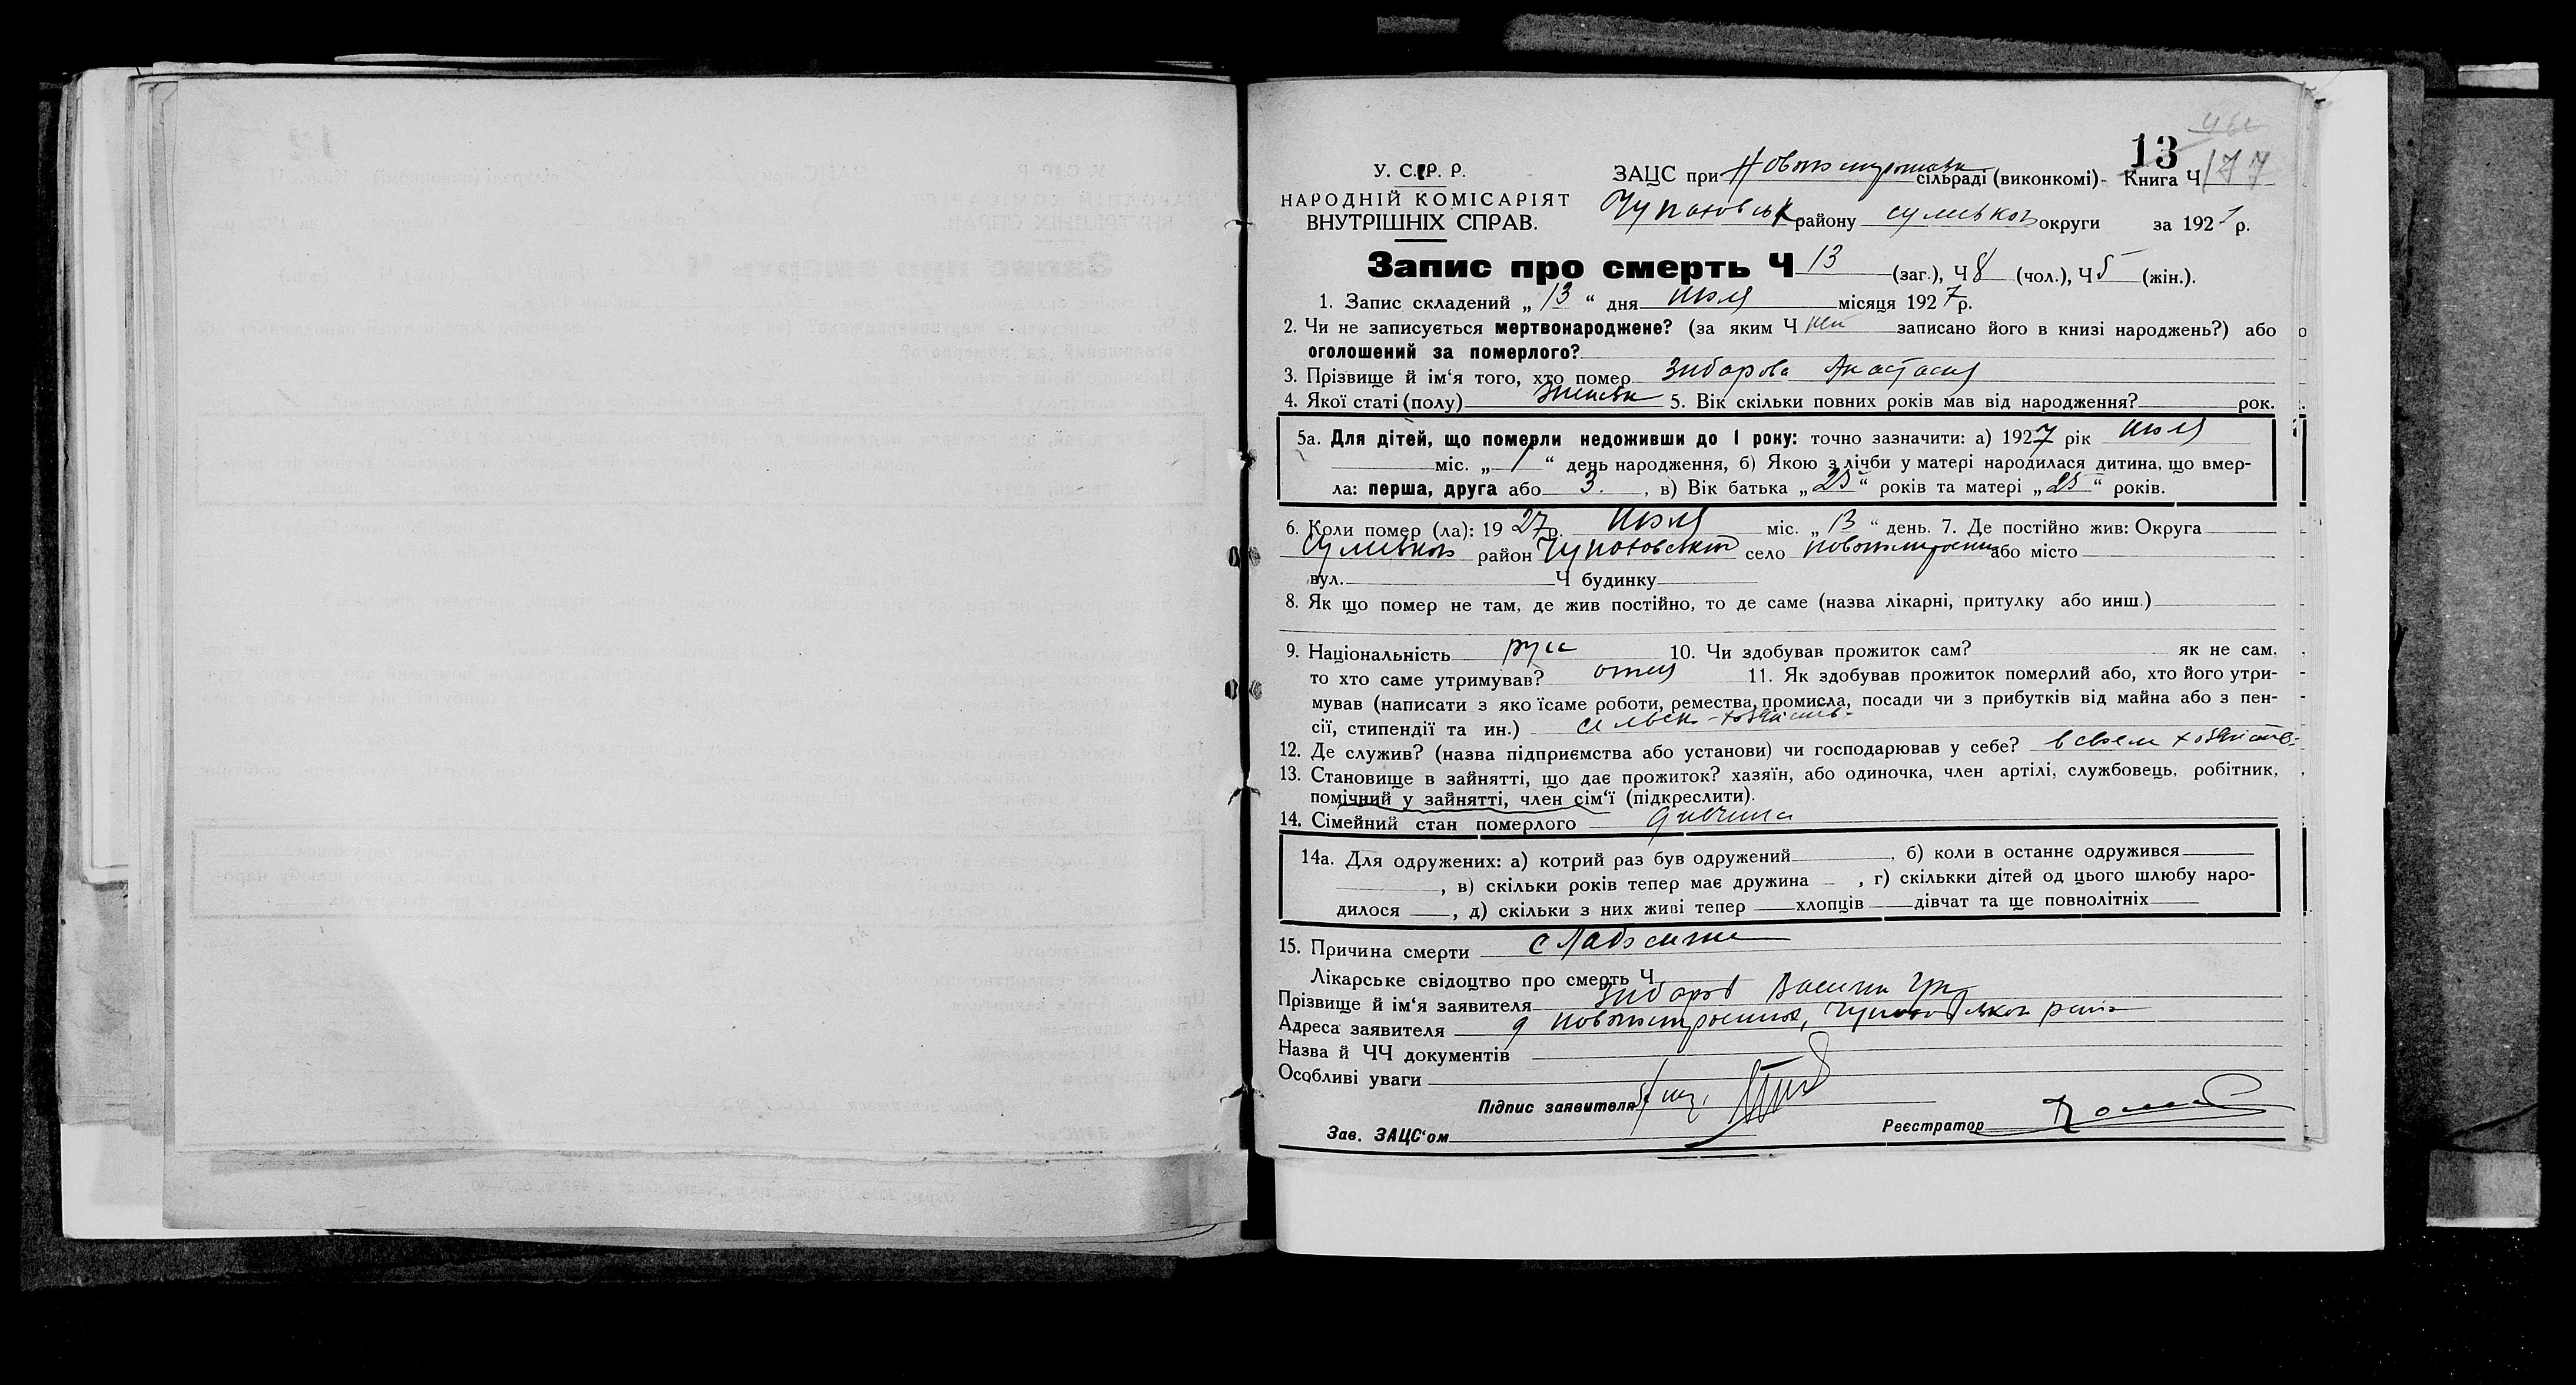 13
177
У. С. Р. Р.
НАРОДНІЙ КОМІСАРІЯТ
ВНУТРІШНІХ СПРАВ.
ЗАЦС при сільраді (виконкомі)- Книга Ч
району сумськой округи за 1927 р.
Запис про смерть Ч 13 (заг.), Ч 8 (чол.), Ч 5 (жін.).
1. Запис складений „ 13 “ дня июля місяця 1927 р.
2. Чи не записується мертвонароджене? (за яким Ч записано його в книзі народжень?) або
оголошений за померлого?
3. Прізвище й ім‘я того, хто помер Зибарова Анастасия
4. Якої статі (полу) 5. Вік скільки повних років мав від народження? рок.
5а. Для дітей, що померли недоживши до 1 року: точно зазначити: а) 1927 рік июля
міс. „ 1 “ день народження, б) Якою з лічби у матері народилася дитина, що вмер-
ла: перша, друга або 3. , в) Вік батька „25“ років та матері „25“ років.
6. Коли помер (ла): 1927р. июля міс. „13“ день. 7. Де постійно жив: Округа
сумськой район село або місто
вул. Ч будинку
8. Як що помер не там, де жив постійно, то де саме (назва лікарні, притулку або инш.)
9. Національність русс 10. Чи здобував прожиток сам? як не сам,
то хто саме утримував? отец 11. Як здобував прожиток померлий або, хто його утри-
мував (написати з яко їсаме роботи, ремества, промисла, посади чи з прибутків від майна або з пен-
сії, стипендії та ин.) сельск-хозяйств-
12. Де служив? (назва підприємства або установи) чи господарював у себе? в своем хозяйств-
13. Становище в зайнятті, що дає прожиток? хазяїн, або одиночка, член артілі, службовець, робітник,
помічний у зайнятті, член сім‘ї (підкреслити).
14. Сімейний стан померлого дивчина
14а. Для одружених: а) котрий раз був одружений , б) коли в останнє одружився
, в) скільки років тепер має дружина , г) скількки дітей од цього шлюбу наро-
дилося , д) скільки з них живі тепер хлопців дівчат та ще повнолітніх
15. Причина смерти слабосилие
Лікарське свідоцтво про смерть Ч
Прізвище й ім‘я заявителя Зибаров Василий Гр
Адреса заявителя
Назва й ЧЧ документів
Особливі уваги
Підпис заявителя
Зав. ЗАЦС‘ом Реєстратор